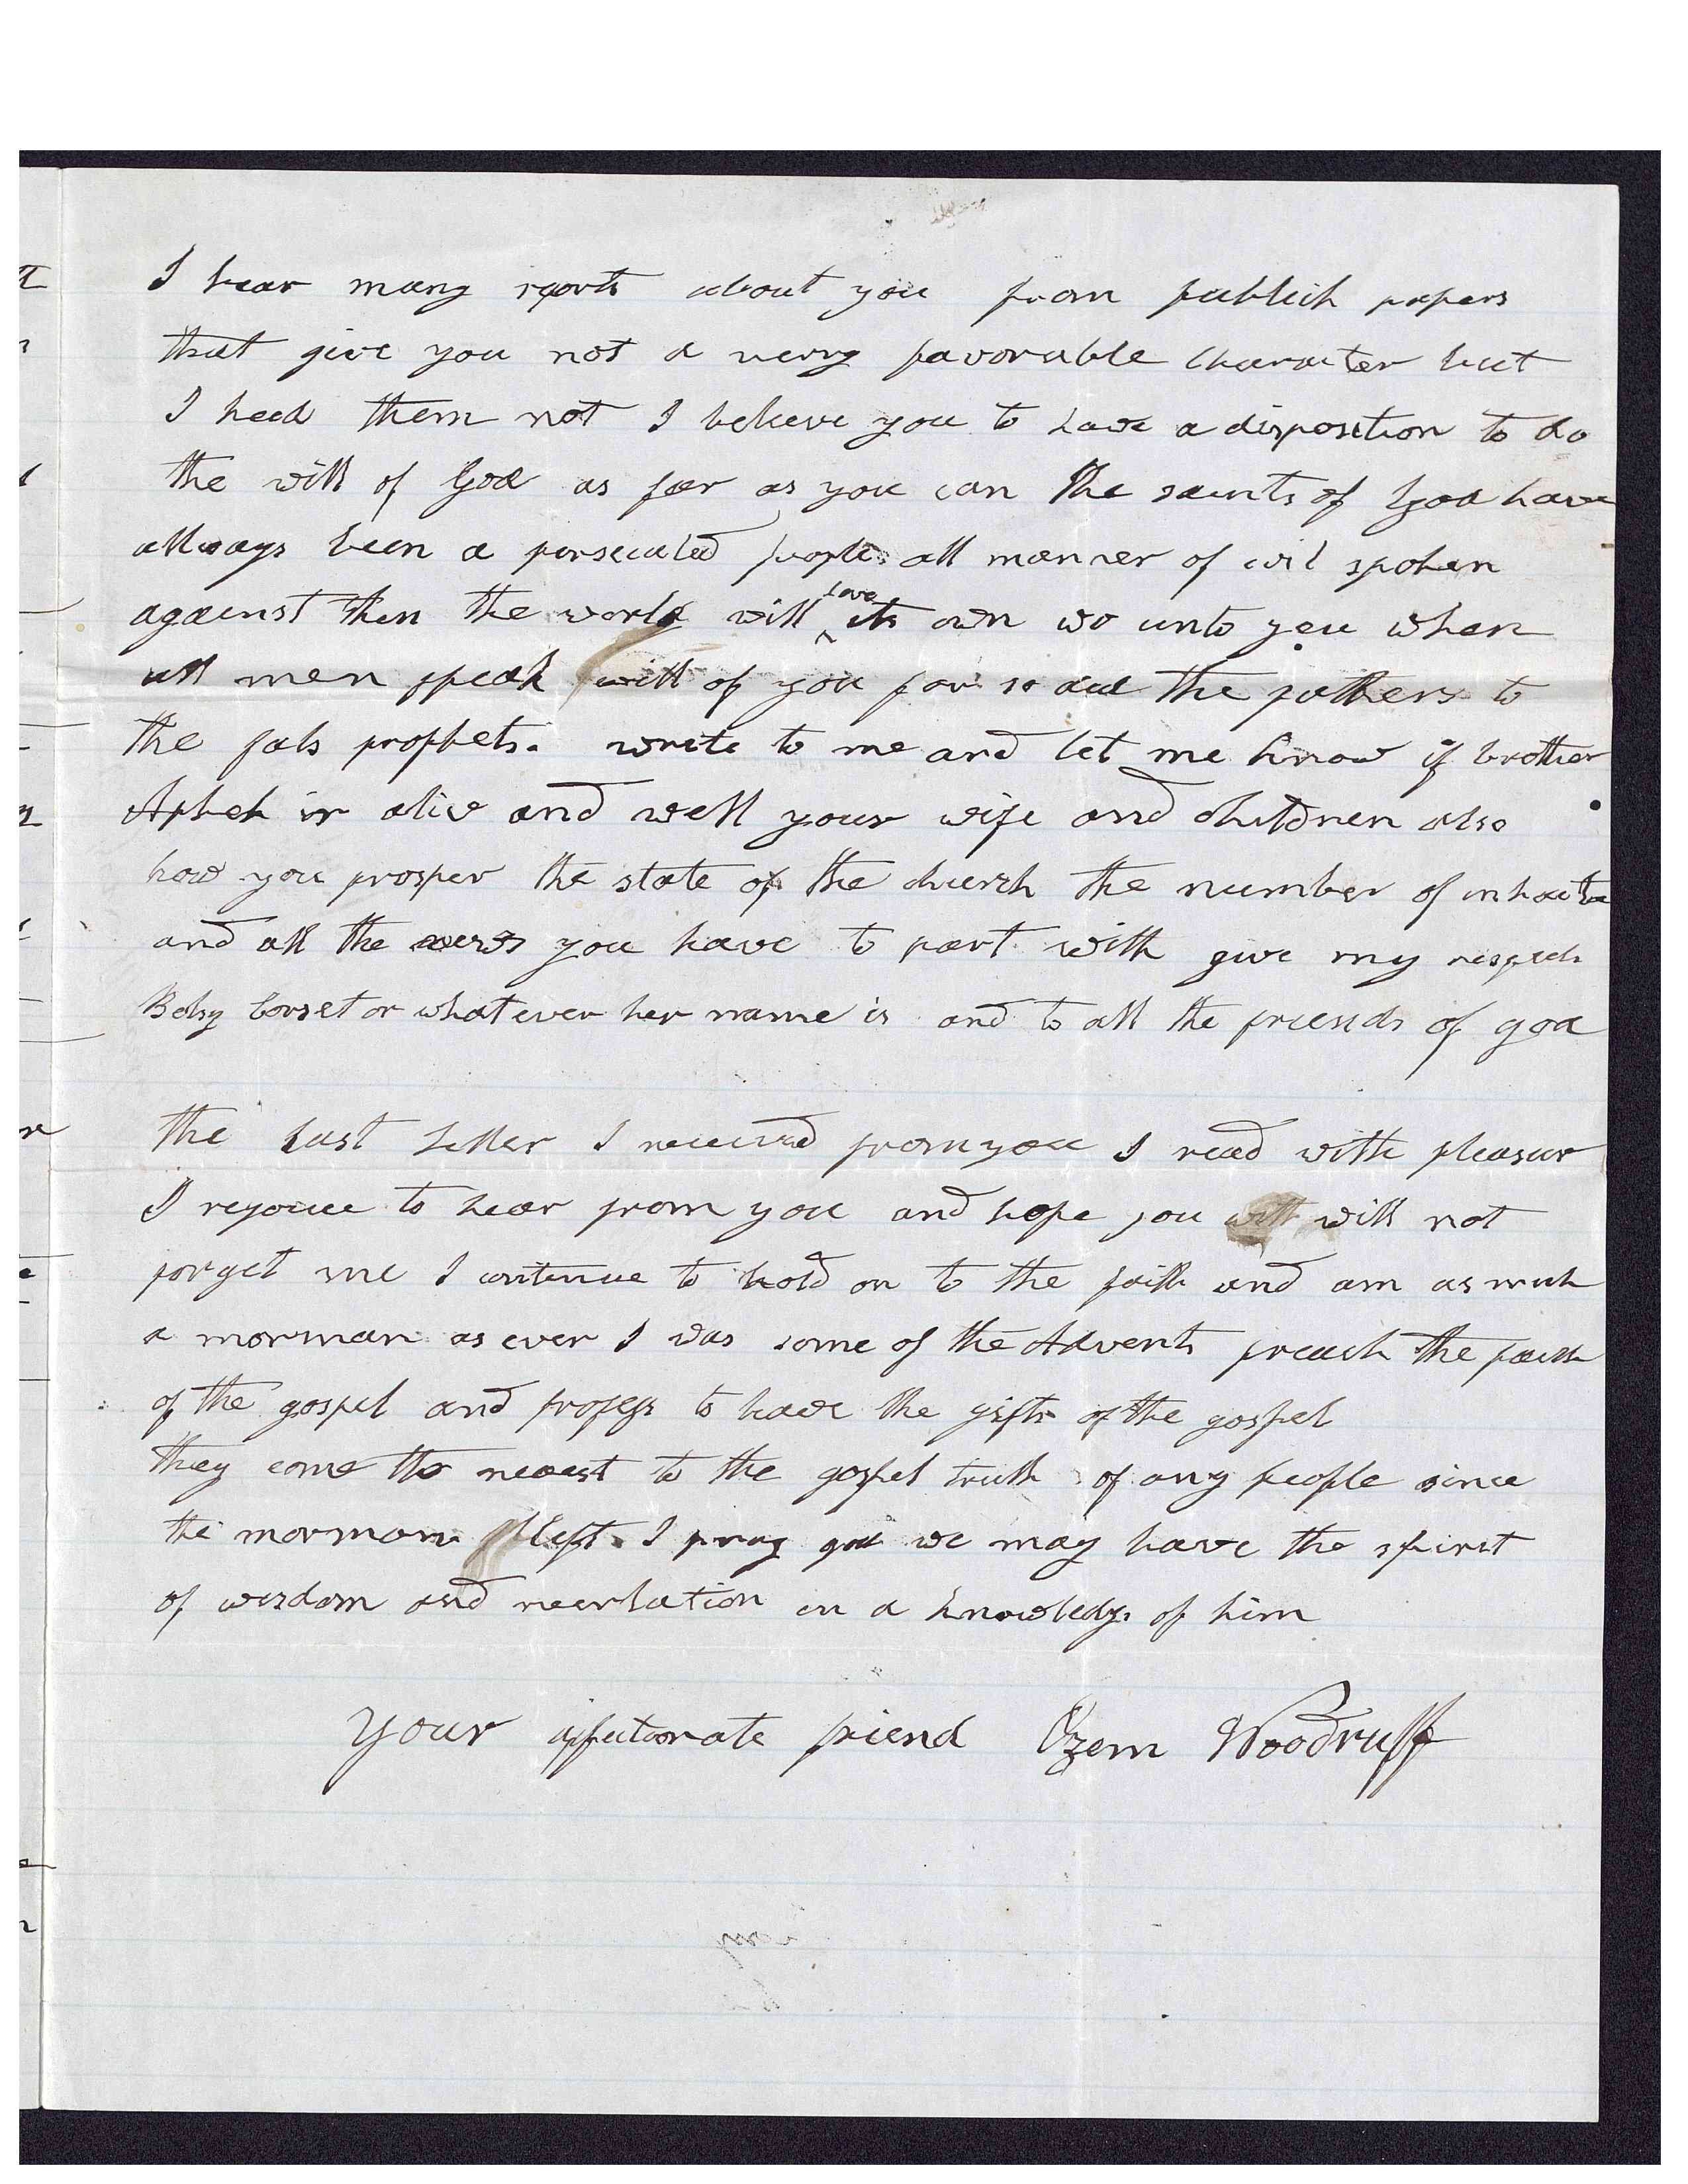 I hear many reports about you from publick papers
that give you not a verry favorable character but
I heed them not I believe you to have a disposition to do
the will of God as far as you can The saints of God have
allways been a persecuted people all manner of evil spoken
against them the world will love its own wo unto you when
all men speak well of you for so did the fathers to
the fals prophets. write to me and let me know if brother
Aphek is alive and well your wife and children also
how you prosper the state of the church the number of inhabita
and all the news you have to part with give my respects
Betsy Corset or what ever her name is and to all the friends of god
The last Letter I received from you I read with pleasur
I rejoice to hear from you and hope you will not
forget me I continue to hold on to the faith and am as much
a morman as ever I was some of the Advents preach the faith
of the gospel and profess to have the gifts of the gospel
they come the nearest to the gospel truth of any people since
the mormons left I pray god we may have the spirit
of wisdom and revelation in a knowledge of him
Your affectionate friend Ozem Woodruff